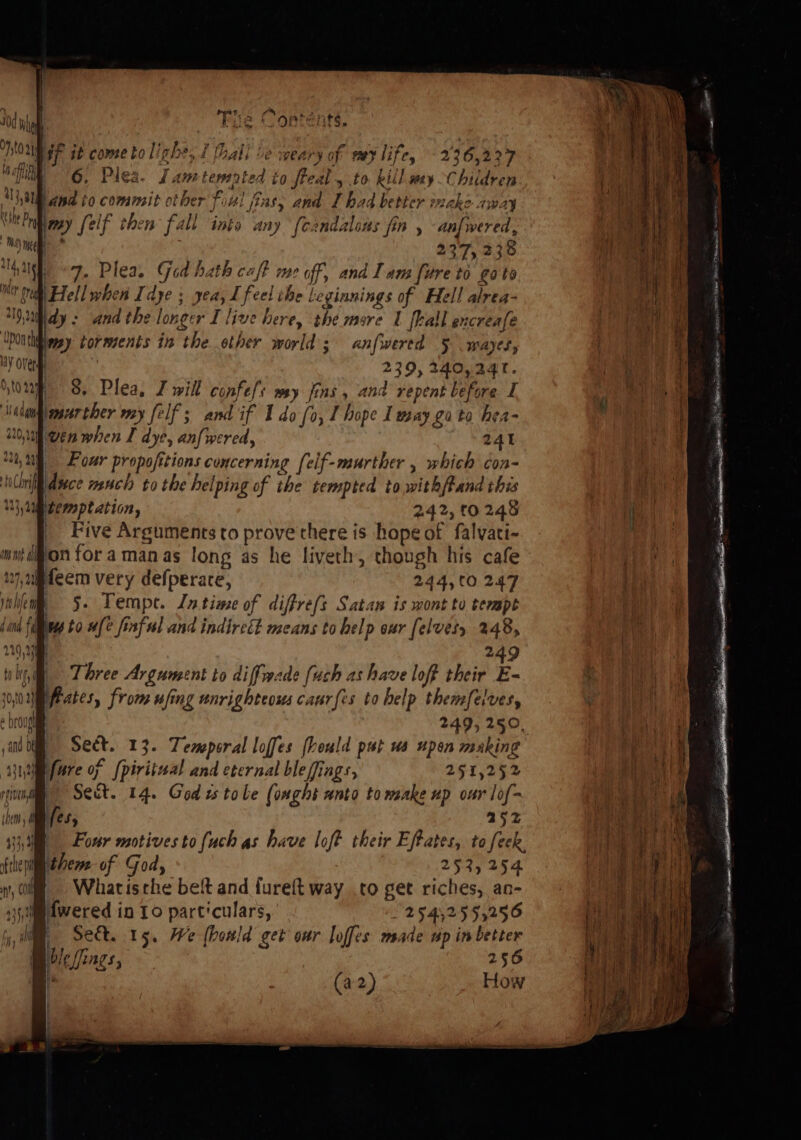 The Contents.
if it come to light, I shall be weary of my life, 236,237
6. Plea. I am tempted to steal, to kill my Children
and to commit other foul sins, and I had better make away
my self then fall into any scandalous sin, answered,
237, 238
7. Plea. God hath cast me off, and I am sure to go to
Hell when I dye; yea, I feel the beginnings of Hell alrea-
dy: and the longer I live here, the more I shall encrease
my torments in the other world; answered 5 wayes,
239, 240, 241.
8. Plea, I will confess my sins, and repent before I
murther my self; and if I do so, I hope I may go to hea-
ven when I dye, answered, 241
Four propositions concerning self-murther, which con-
duce much to the helping of the tempted to withstand this
temptation, 242, to 248
Five Arguments to prove there is hope of salvati-
on for a man as long as he liveth, though his case
seem very desperate, 244, to 247
5. Tempt. In time of distress Satan is wont to tempt
to use sinful and indirect means to help our selves, 248,
249
Three Argument to disswade such as have lost their E-
states, from using unrighteous courses to help themselves,
249, 250,
Sect. 13. Temporal losses should put us upon making
sure of spiritual and eternal blessings, 251,252
Sect. 14. God is to be sought unto to make up our los-
ses, 252
Four motives to such as have lost their Estates, to seek
them of God, 253, 254
What is the best and surest way to get riches, an-
swered in 10 particulars, 254,255,256
Sect. 15. We should get our losses made up in better
blessings, 256
(a 2) How